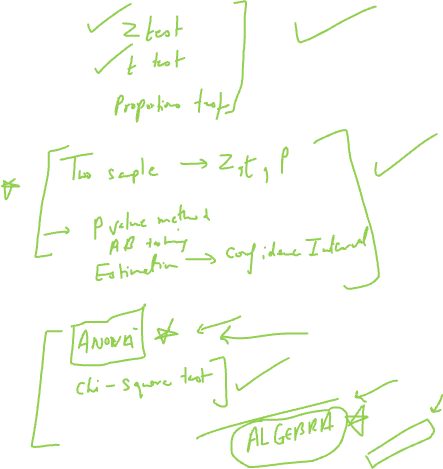 Z test
t test
Proportions test
Two sample → Z, t, P
→ P value method
AB testing
Estimation → confidence Interval
ANOVA
chi-square test
ALGEBRA